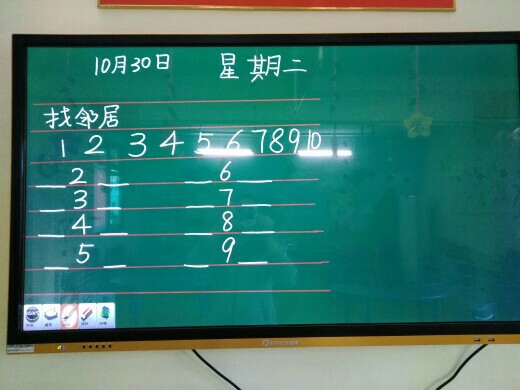 10月30日 星期二
找邻居
1 2 3 4 5 6 7 8 9 10
__ 2 __ __ 6 __
__ 3 __ __ 7 __
__ 4 __ __ 8 __
__ 5 __ __ 9 __